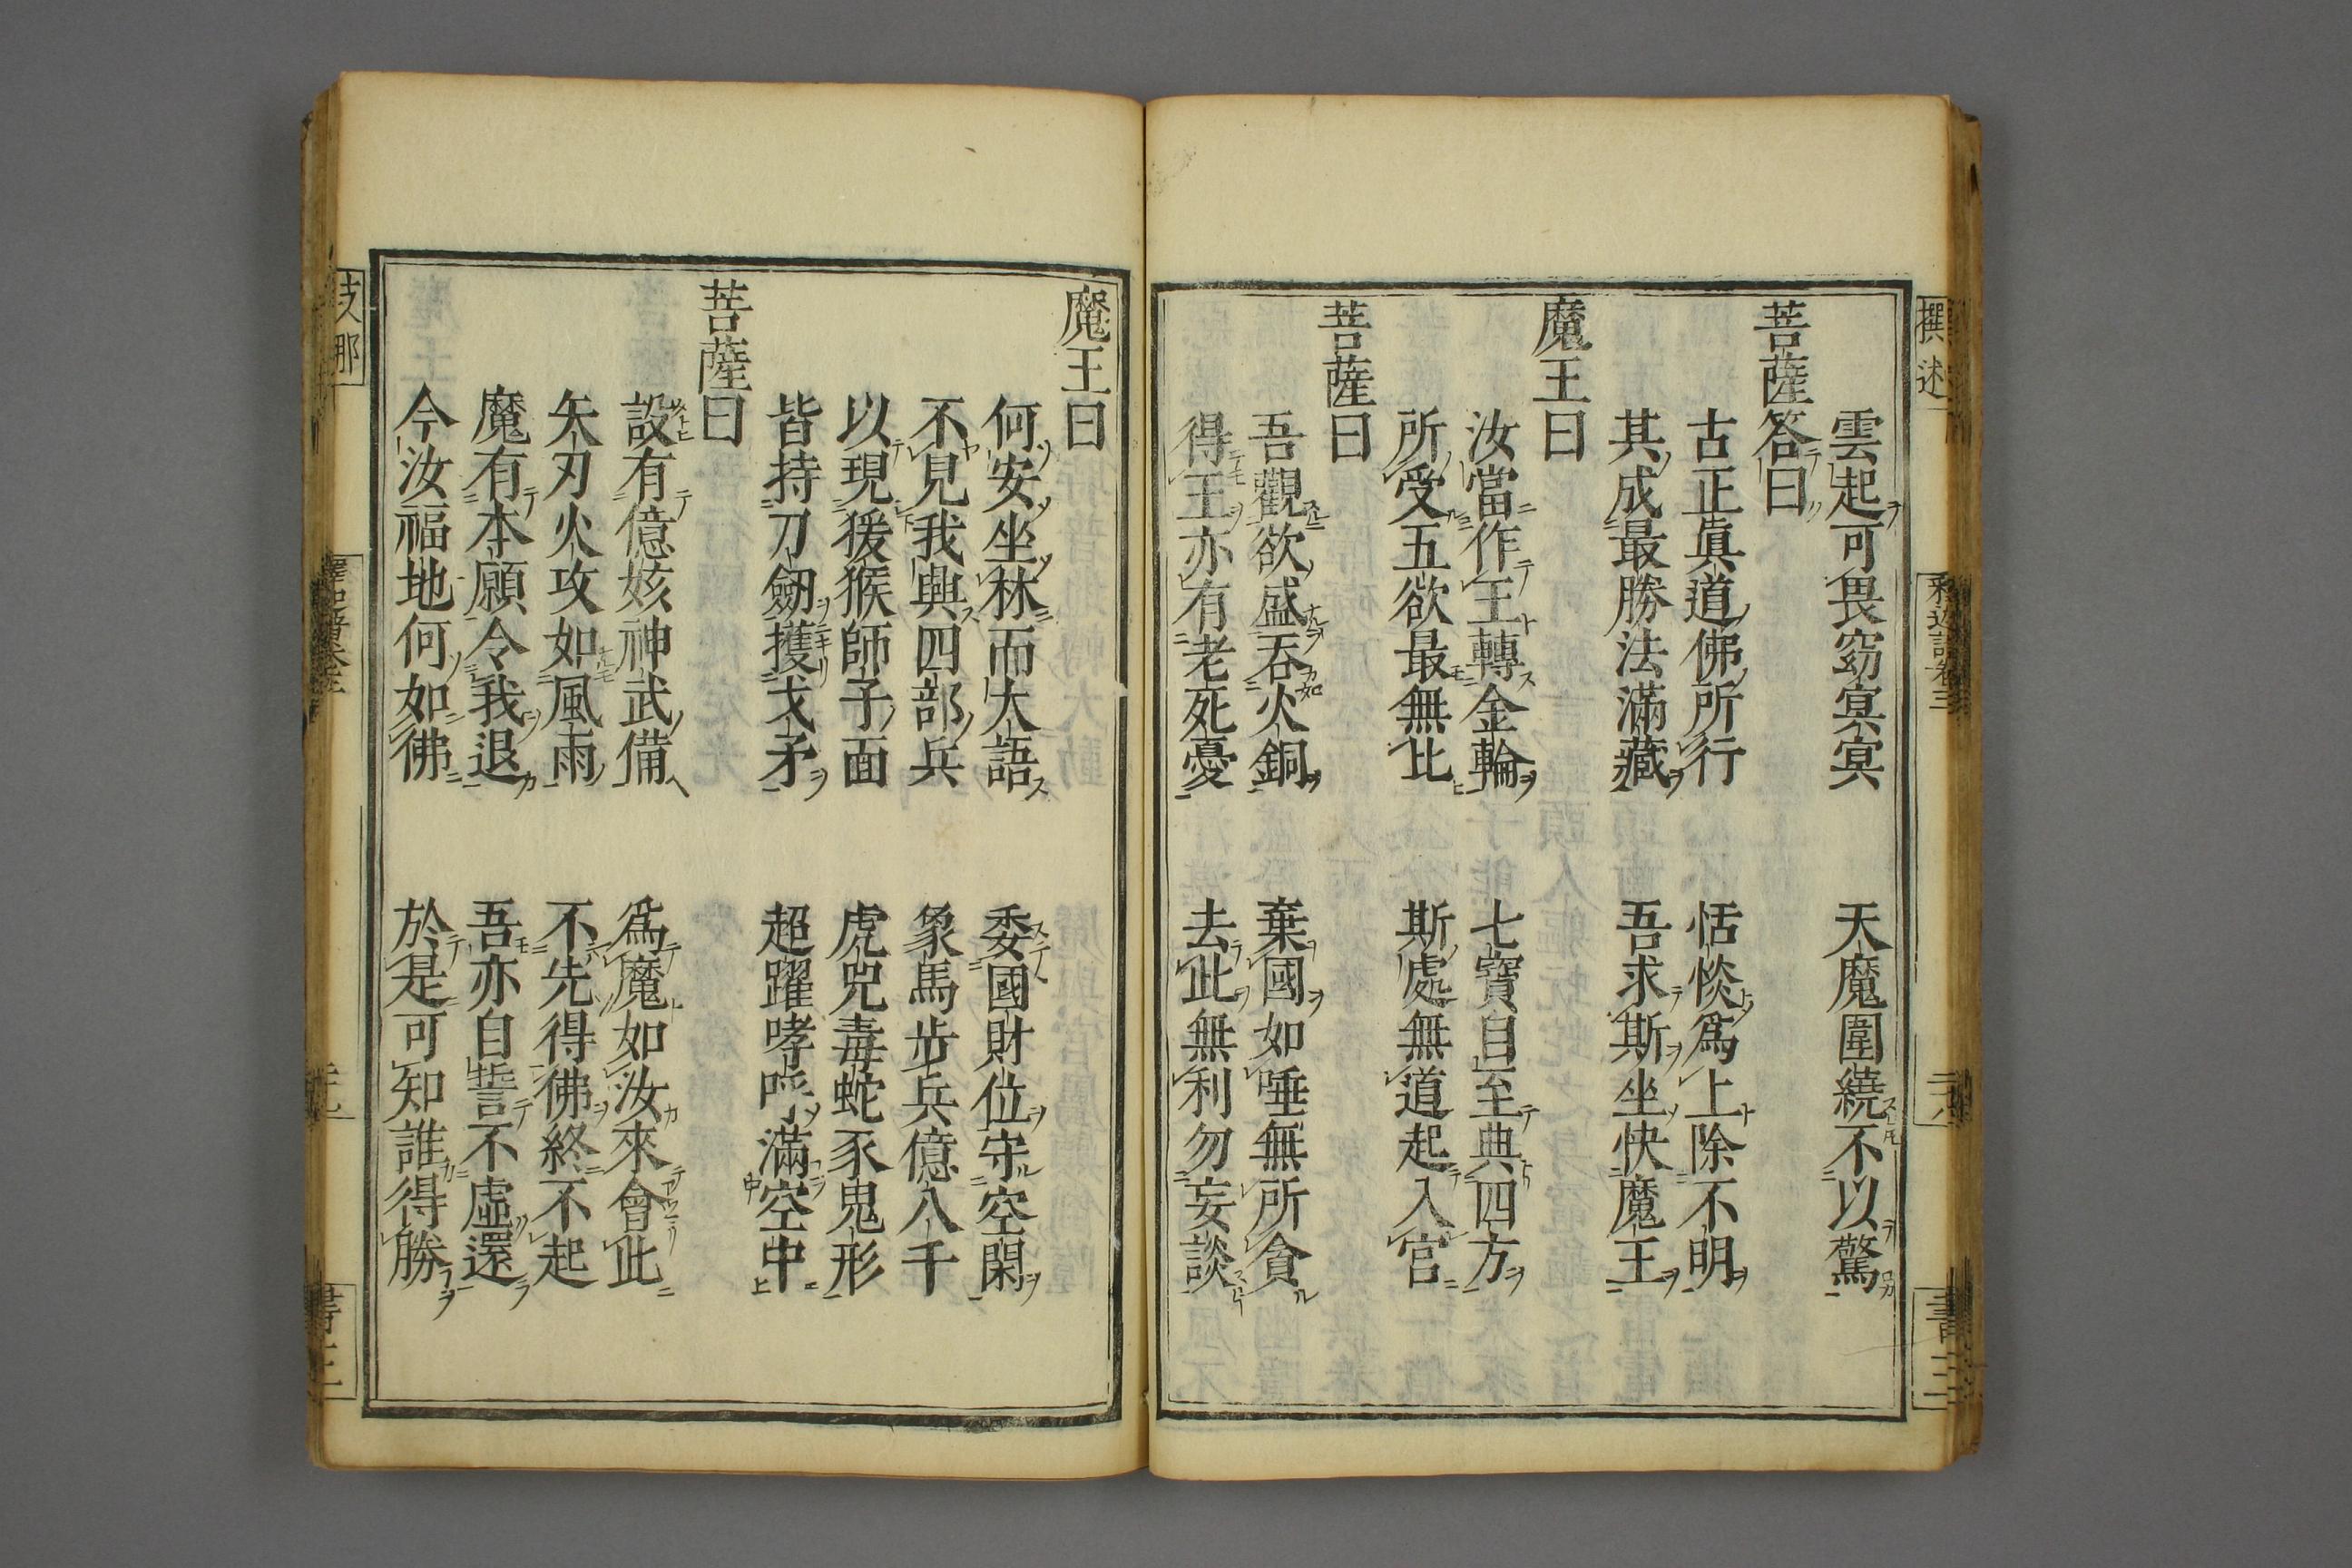 撰述
釈迦譜卷三
二八
書三
雲起可畏窈冥冥　天魔圍繞不以驚
菩薩答曰
古正眞道佛所行　恬惔爲上除不明
其成最勝法滿藏　吾求斯坐快魔王
魔王曰
汝當作王轉金輪　七寶自至典四方
所受五欲最無比　斯處無道起入宮
菩薩曰
吾觀欲盛吞火銅　棄國如唾無所貪
得王亦有老死憂　去此無利勿妄談
魔王曰
何安坐林而大語　委國財位守空閑
不見我與四部兵　象馬步兵億八千
以現猨猴師子面　虎兕毒蛇豕鬼形
皆持刀劒擭戈矛　超躍哮呼滿空中
菩薩曰
設有億姟神武備　爲魔如汝來會此
矢刃火攻如風雨　不先得佛終不起
魔有本願令我退　吾亦自誓不虛還
今汝福地何如佛　於是可知誰得勝
支那
書三